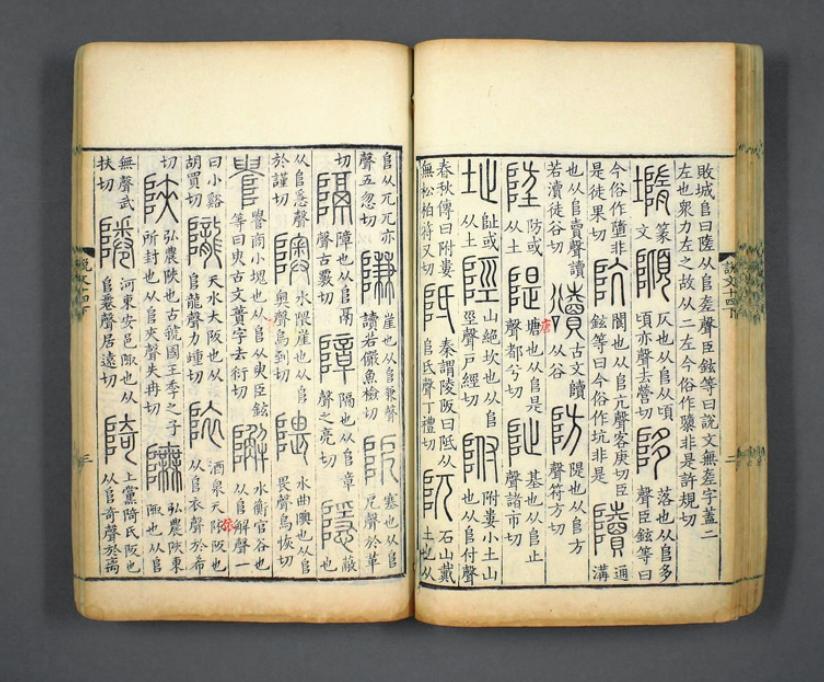 敗城𨸏曰隓从𨸏㚇聲臣鉉等曰說文無㚇字蓋二左也衆力左之故从二左今俗作隳非是許規切
墮篆文𨻺仄也从𨸏从頃頃亦聲去營切陊落也从𨸏多聲臣鉉等曰
今俗作墮非是徒果切阬閬也从𨸏亢聲客庚切臣鉉等曰今俗作坑非是隫通溝
也从𨸏賣聲讀若瀆徒谷切古文隫从谷防隄也从𨸏方聲符方切
防或从土隄塘也从𨸏是聲都兮切阯基也从𨸏止聲諸市切
址阯或从土陘山絕坎也从𨸏巠聲戶經切附附婁小土山也从𨸏付聲
春秋傳曰附婁無松柏符又切阺秦謂陵阪曰阺从𨸏氐聲丁禮切阢石山戴土也从
說文十四下
二
𨸏从兀兀亦聲五忽切隒崖也从𨸏兼聲讀若儼魚檢切阸塞也从𨸏戹聲於革
切隔障也从𨸏鬲聲古覈切障隔也从𨸏章聲之亮切隱蔽也
从𨸏㥯聲於謹切隩水隈崖也从𨸏奧聲烏到切隈水曲隩也从𨸏畏聲烏恢切
𨺅𨺅商小塊也从𨸏从臾臣鉉等曰臾古文蕢字去衍切𨼬水衡官谷也从𨸏解聲一
曰小谿胡買切隴天水大阪也从𨸏龍聲力踵切酒泉天阪也从𨸏衣聲於希
切陝弘農陝也古虢國王季之子所封也从𨸏夾聲失冉切弘農陝東陬也从𨸏
無聲武扶切河東安邑陬也从𨸏聲居遠切陭上黨陭氏阪也从𨸏奇聲於离
說文十四下
三